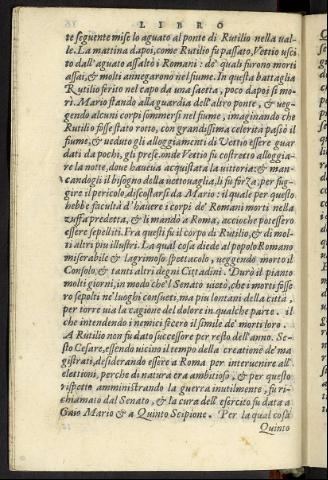 LIBRO
te seguente mise lo aguato al ponte di Rutilio nella ual-
le. La mattina dapoi, come Rutilio fu passato, Vettio usci
to dall'aguato assaltò i Romani: de' quali furono morti
assai, & molti annegarono nel fiume. In questa battaglia
Rutilio ferito nel capo da una saetta, poco dapoi si mo-
rì. Mario stando alla guardia dell'altro ponte, & ueg-
gendo alcuni corpi sommersi nel fiume, imaginando che
Rutilio fosse stato rotto, con grandissima celerità passò il
fiume, & ueduto gli alloggiamenti di Vettio essere guar
dati da pochi, gli prese. onde Vettio fu costretto alloggia-
re la notte, doue haueua acquistata la uittoria: & man-
candogli il bisogno della uettouaglia, li fu forza, per fug-
gire il pericolo discostarsi da Mario: il quale per questo
hebbe facultà d'hauere i corpi de' Romani morti nella
zuffa predetta, & li mandò a Roma, accioche potessero
essere sepelliti. Fra questi fu il corpo di Rutilio, & di mol-
ti altri piu illustri. La qual cosa diede al popolo Romano
miserabile & lagrimoso spettacolo, ueggendo morto il
Consolo, & tanti altri degni Cittadini. Durò il pianto
molti giorni, in modo che'l Senato uietò, che i morti fosse
ro sepolti ne' luoghi consueti, ma piu lontani della città,
per torre uia la cagione del dolore in qualche parte. il
che intendendo i nemici fecero il simile de' morti loro.
A Rutilio non fu dato successore per resto dell'anno. Se-
sto Cesare, essendo uicino il tempo della creatione de' ma
gistrati, desiderando essere a Roma per interuenire all'
elettioni, perche di natura era ambitioso, & per questo
rispetto amministrando la guerra inutilmente, fu ri-
chiamato dal Senato, & la cura dell'esercito fu data a
Gaio Mario & a Quinto Scipione. Per la qual cosa
Quinto